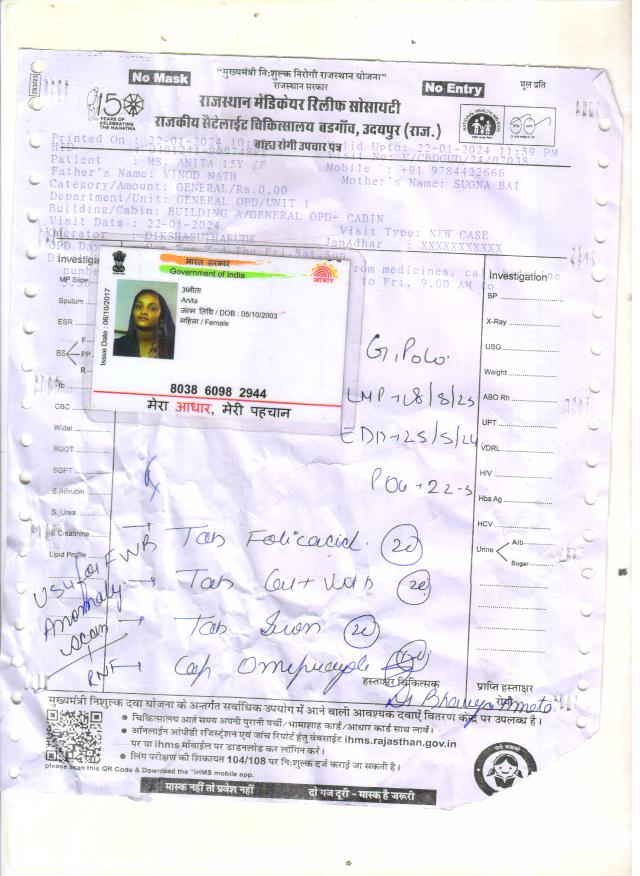 No Mask
"मुख्यमंत्री नि:शुल्क निरोगी राजस्थान योजना"
राजस्थान सरकार
No Entry
मूल प्रति
150
YEARS OF
CELEBRATING
THE MAHATMA
राजस्थान मेडिकेयर रिलीफ सोसायटी
राजकीय सैटेलाईट चिकित्सालय बडगाँव, उदयपुर (राज.)
बाह्य रोगी उपचार पत्र
Printed On : 22-01-2024 Valid Upto: 22-01-2024 11:59 PM
Patient : MS. ANITA 15Y /F Mobile : +91 9784422666
Father's Name: VINOD NATH Mother's Name: SUGNA BAI
Category/Amount: GENERAL/Rs.0.00
Department/Unit: GENERAL OPD/UNIT 1
Building/Cabin: BUILDING A/GENERAL OPD- CABIN
Visit Date : 22-01-2024 Visit Type: NEW CASE
Operator : DIKSHASUTHARUDE JanAdhar : XXXXXXXXXXX
OPD Day
from medicines,
number to Fri. 9.00 AM to
भारत सरकार
Government of India
आधार
Issue Date : 06/10/2017
अनीता
Anita
जन्म तिथि / DOB : 05/10/2003
महिला / Female
8038 6098 2944
मेरा आधार, मेरी पहचान
MP Slide
Sputum
ESR
F
BS PP
R
Hb
CBC
Widal
SGOT
SGPT
S.Bilirubin
S. Urea
Creatinine
Lipid Profile
Investigation
BP
X-Ray
USG
Weight
ABO Rh
UPT
VDRL
HIV
Hbs Ag
HCV
Urine Alb
Sugar
G1P0L0
LMP → 18/8/23
EDD → 25/5/24
POG → 22-3
Tab Folicacid 20
Tab Cal + Vit D 20
Tab Iron 20
Cap Omeprazole
USG for FWB
Anomaly
scan
RNF
हस्ताक्षर चिकित्सक
प्राप्ति हस्ताक्षर
Dr Bhavya Ameta
मुख्यमंत्री निशुल्क दवा योजना के अन्तर्गत सर्वाधिक उपयोग में आने वाली आवश्यक दवाऐं वितरण केन्द्र पर उपलब्ध है।
चिकित्सालय आते समय अपनी पुरानी पर्ची/भामाशाह कार्ड/आधार कार्ड साथ लावें।
ऑनलाईन ओपीडी रजिस्ट्रेशन एवं जांच रिपोर्ट हेतु वेबसाईट ihms.rajasthan.gov.in
पर या ihms मोबाईल पर डाउनलोड कर लॉगिन करें।
लिंग परीक्षण की शिकायत 104/108 पर नि:शुल्क दर्ज कराई जा सकती है।
please scan this QR Code & Download the "iHMS mobile app.
मास्क नहीं तो प्रवेश नहीं
दो गज दूरी - मास्क है जरूरी